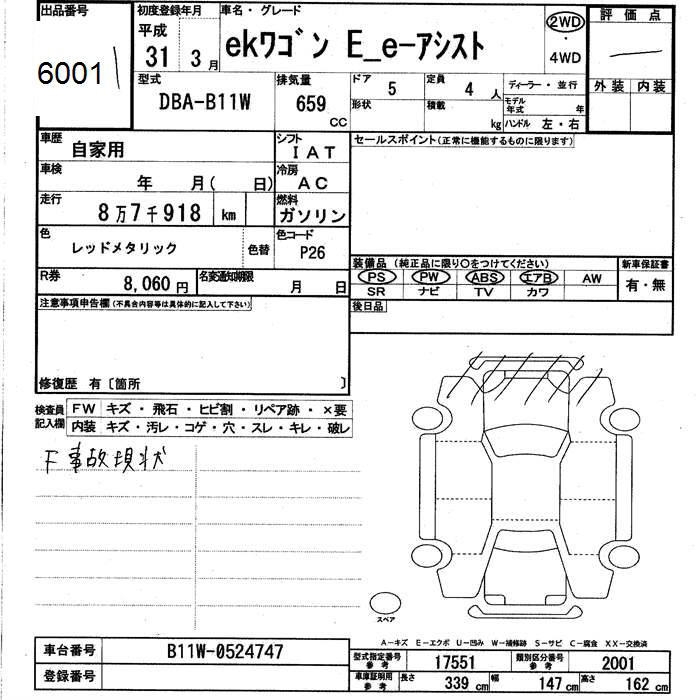 出品番号
6001
初度登録年月
平成
31 3月
車名・グレード
ekワゴン E_e-アシスト
2WD
・
4WD
評価点
外装 内装
型式
DBA-B11W
排気量
659
CC
ドア
5
定員
4 人
形状
積載
kg
ディーラー・並行
モデル年式 年
ハンドル 左・右
車歴
自家用
シフト
IAT
セールスポイント(正常に機能するものに限ります)
車検
年 月( 日)
冷房
AC
走行
8万7千918 km
燃料
ガソリン
色
レッドメタリック
色替
色コード
P26
装備品 (純正品に限り○をつけてください)
PS PW ABS エアB AW
SR ナビ TV カワ
新車保証書
有・無
R券
8,060円
名変通知期限
月 日
後日品
注意事項申告欄(不具合内容等は具体的に記入して下さい)
修復歴 有〔箇所 〕
検査員記入欄
FW キズ・飛石・ヒビ割・リペア跡・×要
内装 キズ・汚レ・コゲ・穴・スレ・キレ・破レ
F事故現状
スペア
A-キズ E-エクボ U-凹み W-補修跡 S-サビ C-腐食 XX-交換済
車台番号
B11W-0524747
登録番号
型式指定番号
参考
17551
類別区分番号
参考
2001
車庫証明用
参考
長さ 339 cm 幅 147 cm 高さ 162 cm